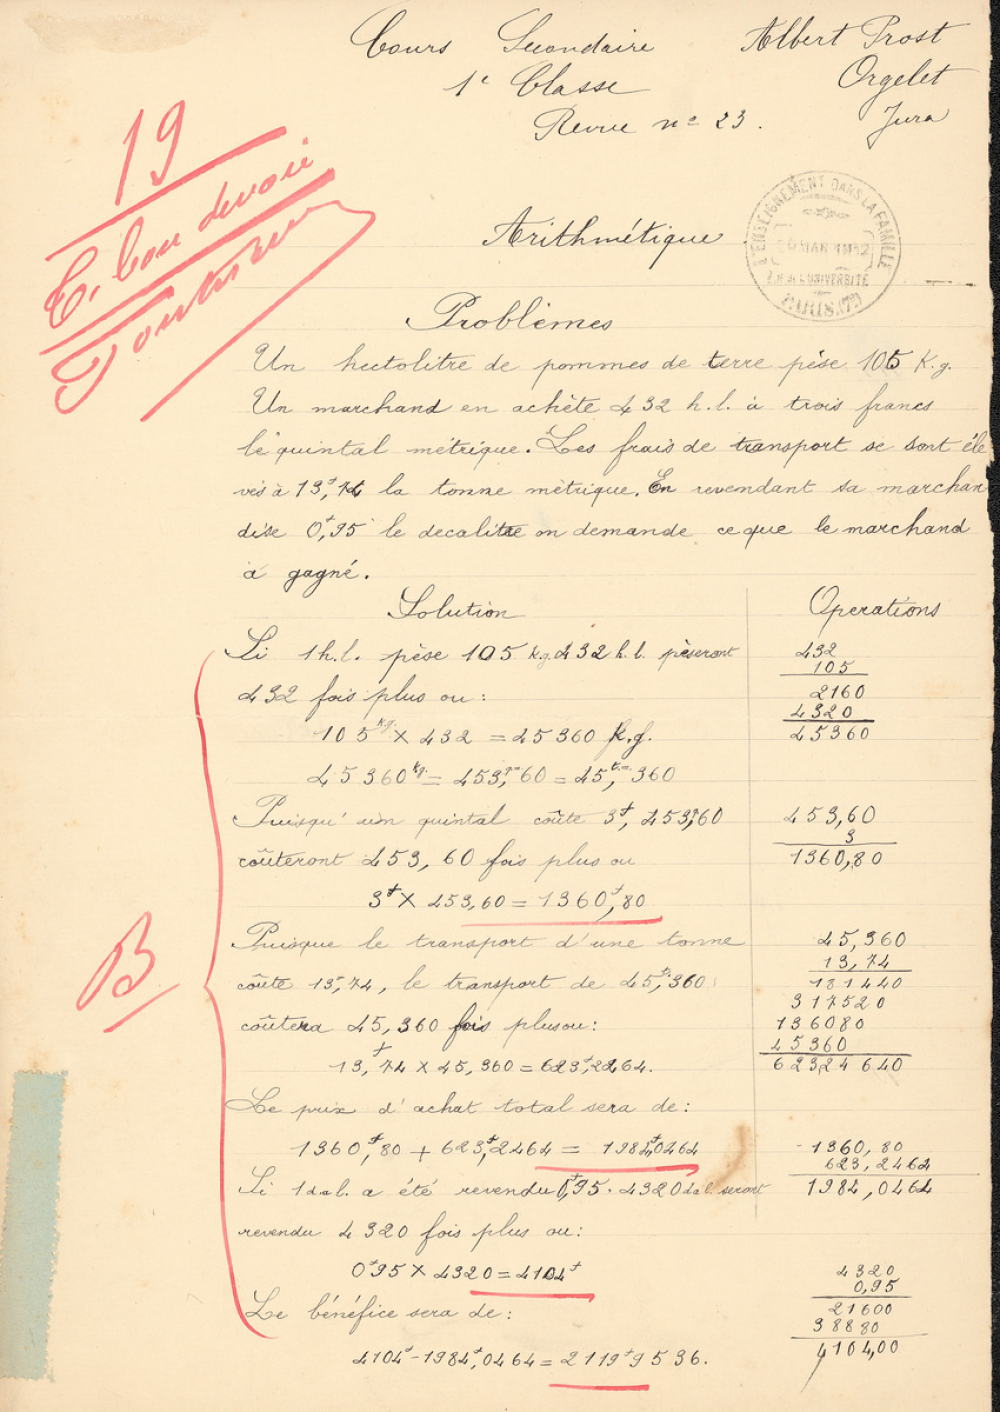 Cours Secondaire
1e Classe
Revue nº 23.
Albert Prost
Orgelet
Jura
19
T. bon devoir
Arithmétique
L'ENSEIGNEMENT DANS LA FAMILLE
R. DE L'UNIVERSITÉ
PARIS (7e)
Problèmes
Un hectolitre de pommes de terre pèse 105 K.g.
Un marchand en achète 432 h.l. à trois francs
le quintal métrique. Les frais de transport se sont éle
vés à 13f,74 la tonne métrique. En revendant sa marchan
dise 0f,95 le decalitre on demande ce que le marchand
a gagné.
Solution
Si 1 h.l. pèse 105 k.g. 432 h.l. pèseront
432 fois plus ou:
105 k.g. × 432 = 45360 k.g.
45360 kg. = 453,qm 60 = 45,t.m. 360
Puisqu'un quintal coûte 3f, 453,q60
coûteront 453,60 fois plus ou
3f × 453,60 = 1360f,80
Puisque le transport d'une tonne
coûte 13f,74, le transport de 45,t.360
coûtera 45,360 fois plus ou:
13f,74 × 45,360 = 623f,2264.
Le prix d'achat total sera de:
1360f,80 + 623f,2464 = 1984f,0464
Si 1 dal. a été revendu 0f,95. 4320 dal. seront
revendu 4320 fois plus ou:
0f95 × 4320 = 4104f
Le bénéfice sera de:
4104f - 1984f,0464 = 2119f9536.
B
Operations
432
105
2160
4320
45360
453,60
3
1360,80
45,360
13,74
181440
317520
136080
45360
62324640
1360,80
623,2464
1984,0464
4320
0,95
21600
38880
4104,00